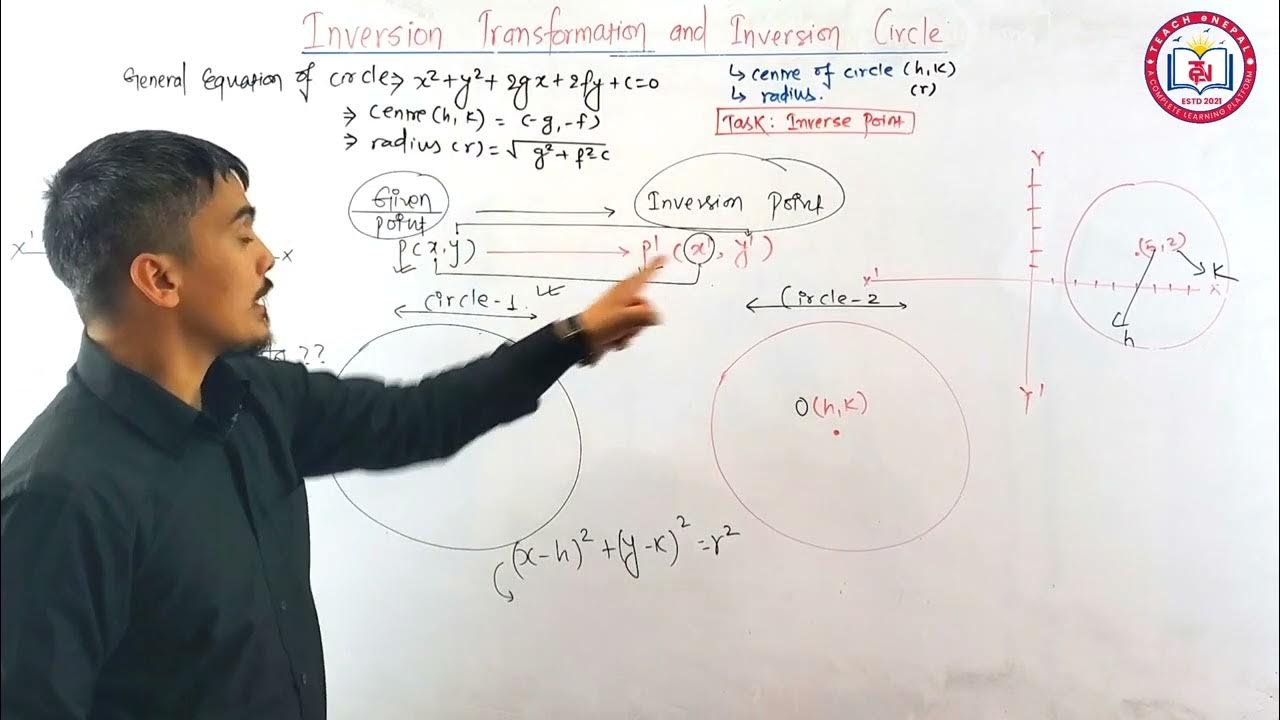 Inversion Transformation and Inversion Circle
TEACH eNEPAL
TEN
ESTD 2021
A COMPLETE LEARNING PLATFORM
General Equation of circle ⇒ x²+y²+2gx+2fy+c=0
⇒ centre (h, k) = (-g, -f)
⇒ radius (r) = √g²+f²c
↳ centre of circle (h, k)
↳ radius. (r)
Task: Inverse Point
Given point → Inversion Point
P(x, y) → P' (x', y')
Circle-1
Circle-2
??
O(h, k)
(x-h)²+(y-k)²=r²
X' X
Y
(5, 2)
k
X' X
h
Y'